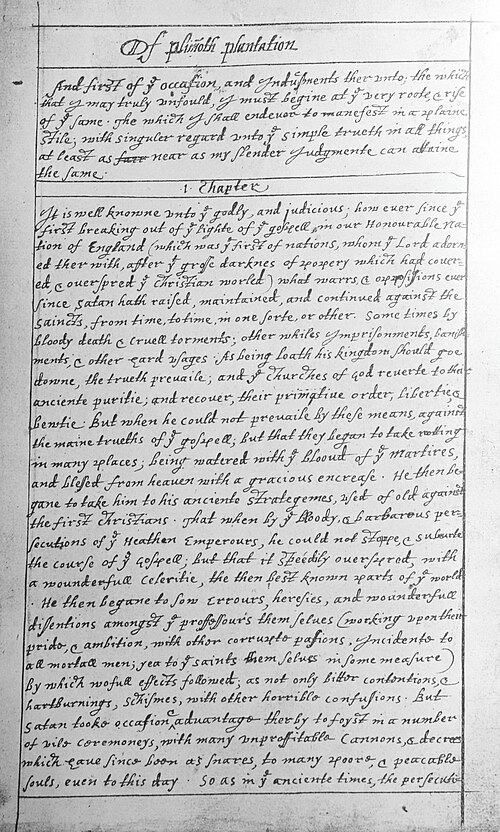 Of plimoth plantation
And first of yᵉ occasion, and Indusments ther unto; the which
that I may truly unfould, I must begine at yᵉ very roote, & rise
of yᵉ same. The which I shall endevor to manefest in a plaine
stile; with singuler regard unto yᵉ simple trueth in all things,
at least as near as my slender Judgmente can attaine
the same.
1. Chapter
It is well knowne unto yᵉ godly, and judicious; how ever since yᵉ
first breaking out of yᵉ lighte of yᵉ gospell, in our Honourable Na-
tion of England (which was yᵉ first of nations, whom yᵉ Lord adorn-
ed ther with, after yᵉ grosse darknes of popery which had cover-
ed, & overspred yᵉ Christian world) what warrs, & oppossisions ever
since Satan hath raised, maintained, and continued against the
Saincts, from time, to time, in one sorte, or other. Some times by
bloody death & cruell torments; other whiles Imprisonments, banish-
ments, & other hard usages. As being loath his kingdom should goe
downe, the trueth prevaile; and yᵉ Churches of God reverte to their
anciente puritie; and recover, their primative order, libertie, &
bewtie. But when he could not prevaile by these means, against
the maine trueths of yᵉ gospell; but that they began to take rooting
in many places; being watered with yᵉ blooud of yᵉ martires,
and blesed from heaven with a gracious encrease. He then be-
gane to take him to his anciente strategemes, used of old against
the first Christians. That when by yᵉ bloody, & barbarous per-
secutions of yᵉ Heathen Emperours, he could not stoppe, & subverte
the course of yᵉ Gospell; but that it speedily overspred, with
a wounderfull celeritie, the then best known parts of yᵉ world.
He then begane to sow errours, heresies, and wounderfull
disentions amongst yᵉ professours them selves (working upon their
pride, & ambition, with other corrupte passions, Incidente to
all mortall men; yea to yᵉ saints them selves in some measure)
By which wofull effects followed; as not only bitter contentions, &
hartburnings, schismes, with other horrible confusions. But
Satan tooke occasion, & advantage therby to foyst in a number
of vile ceremoneys, with many unproffitable Cannons, & decrees
which have since been as snares, to many poore, & peaceable
souls, even to this day. So as in yᵉ anciente times, the persecuti-